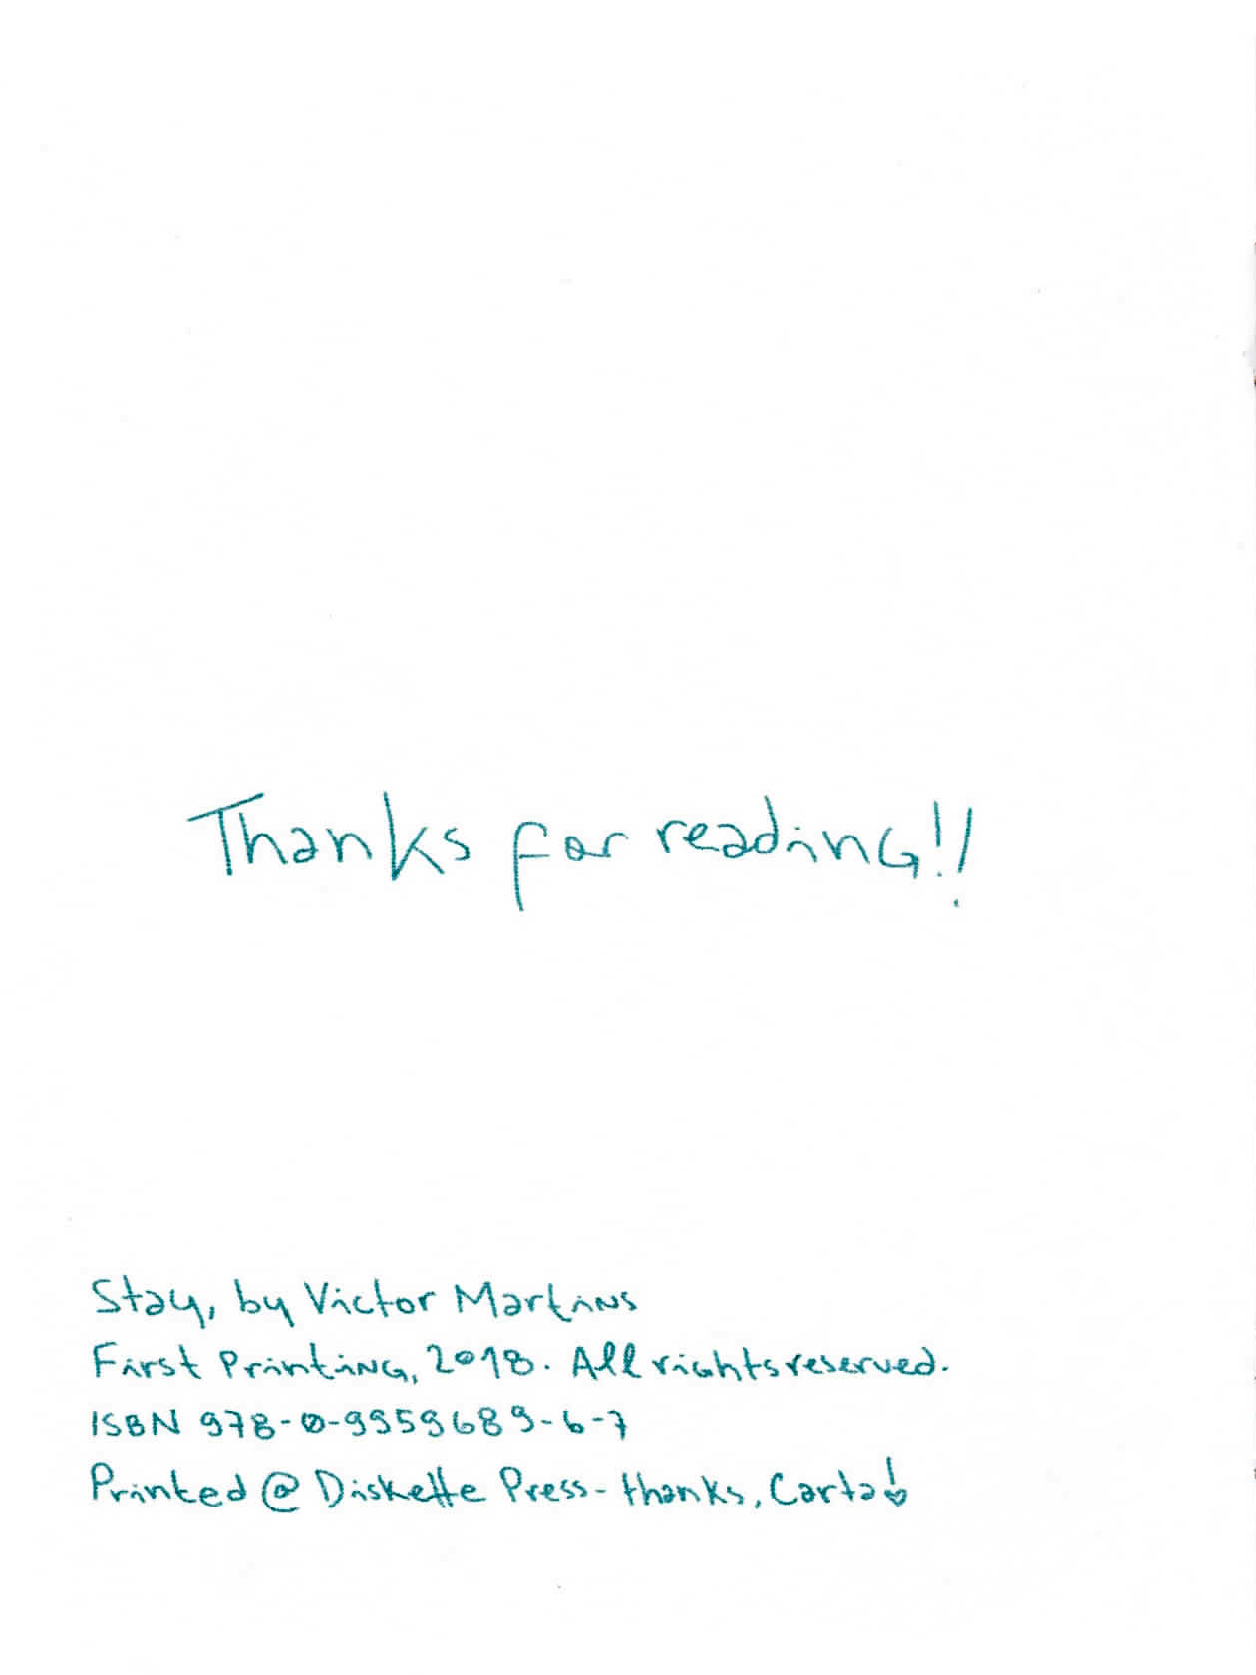 Thanks for reading!!
Stay, by Victor Martins
First Printing, 2018. All rights reserved.
ISBN 978-0-9959689-6-7
Printed @ Diskette Press - thanks, Carta!